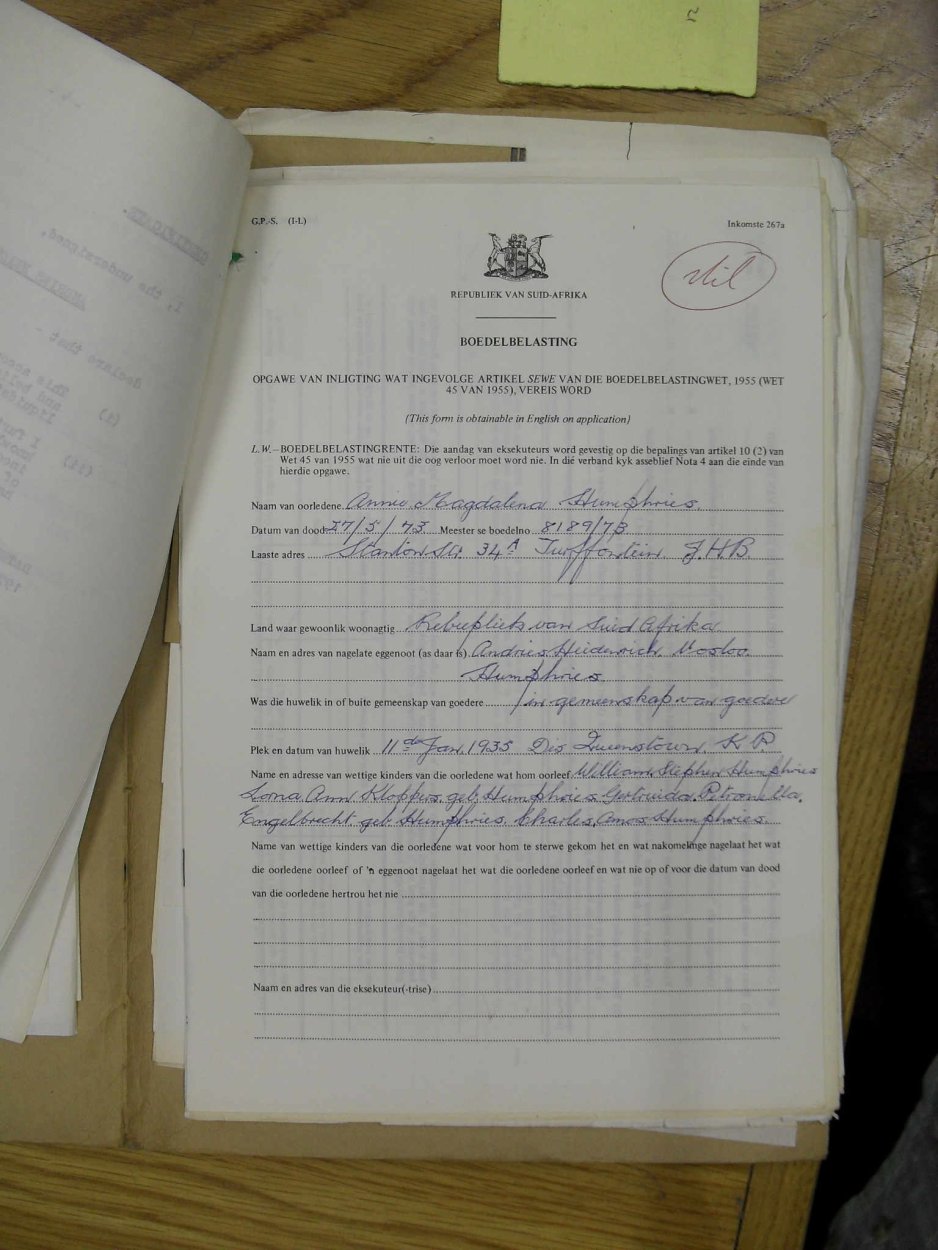 G.P.-S. (I-L)
Inkomste 267a
Nil
REPUBLIEK VAN SUID-AFRIKA
BOEDELBELASTING
OPGAWE VAN INLIGTING WAT INGEVOLGE ARTIKEL SEWE VAN DIE BOEDELBELASTINGWET, 1955 (WET
45 VAN 1955), VEREIS WORD
(This form is obtainable in English on application)
L.W.—BOEDELBELASTINGRENTE: Die aandag van eksekuteurs word gevestig op die bepalings van artikel 10 (2) van
Wet 45 van 1955 wat nie uit die oog verloor moet word nie. In dié verband kyk asseblief Nota 4 aan die einde van
hierdie opgawe.
Naam van oorledene Annie Magdalena Humphries
Datum van dood 27/5/73 Meester se boedelno 8189/73
Laaste adres Stanton Str 34A Turffontein J.H.B
Land waar gewoonlik woonagtig Rebupliek van Suid Afrika
Naam en adres van nagelate eggenoot (as daar is) Andries Vosloo
Humphries
Was die huwelik in of buite gemeenskap van goedere in gemeenskap van goedere
Plek en datum van huwelik 11de Jan. 1935 Dis Queenstown. K.P.
Name en adresse van wettige kinders van die oorledene wat hom oorleef William Stephen Humphries
Lorna Ann Kloppers. geb. Humphries. Gertruida. Petronella.
Engelbrecht geb. Humphries. Charles, Amos Humphries.
Name van wettige kinders van die oorledene wat voor hom te sterwe gekom het en wat nakomelinge nagelaat het wat
die oorledene oorleef of 'n eggenoot nagelaat het wat die oorledene oorleef en wat nie op of voor die datum van dood
van die oorledene hertrou het nie
Naam en adres van die eksekuteur(-trise)